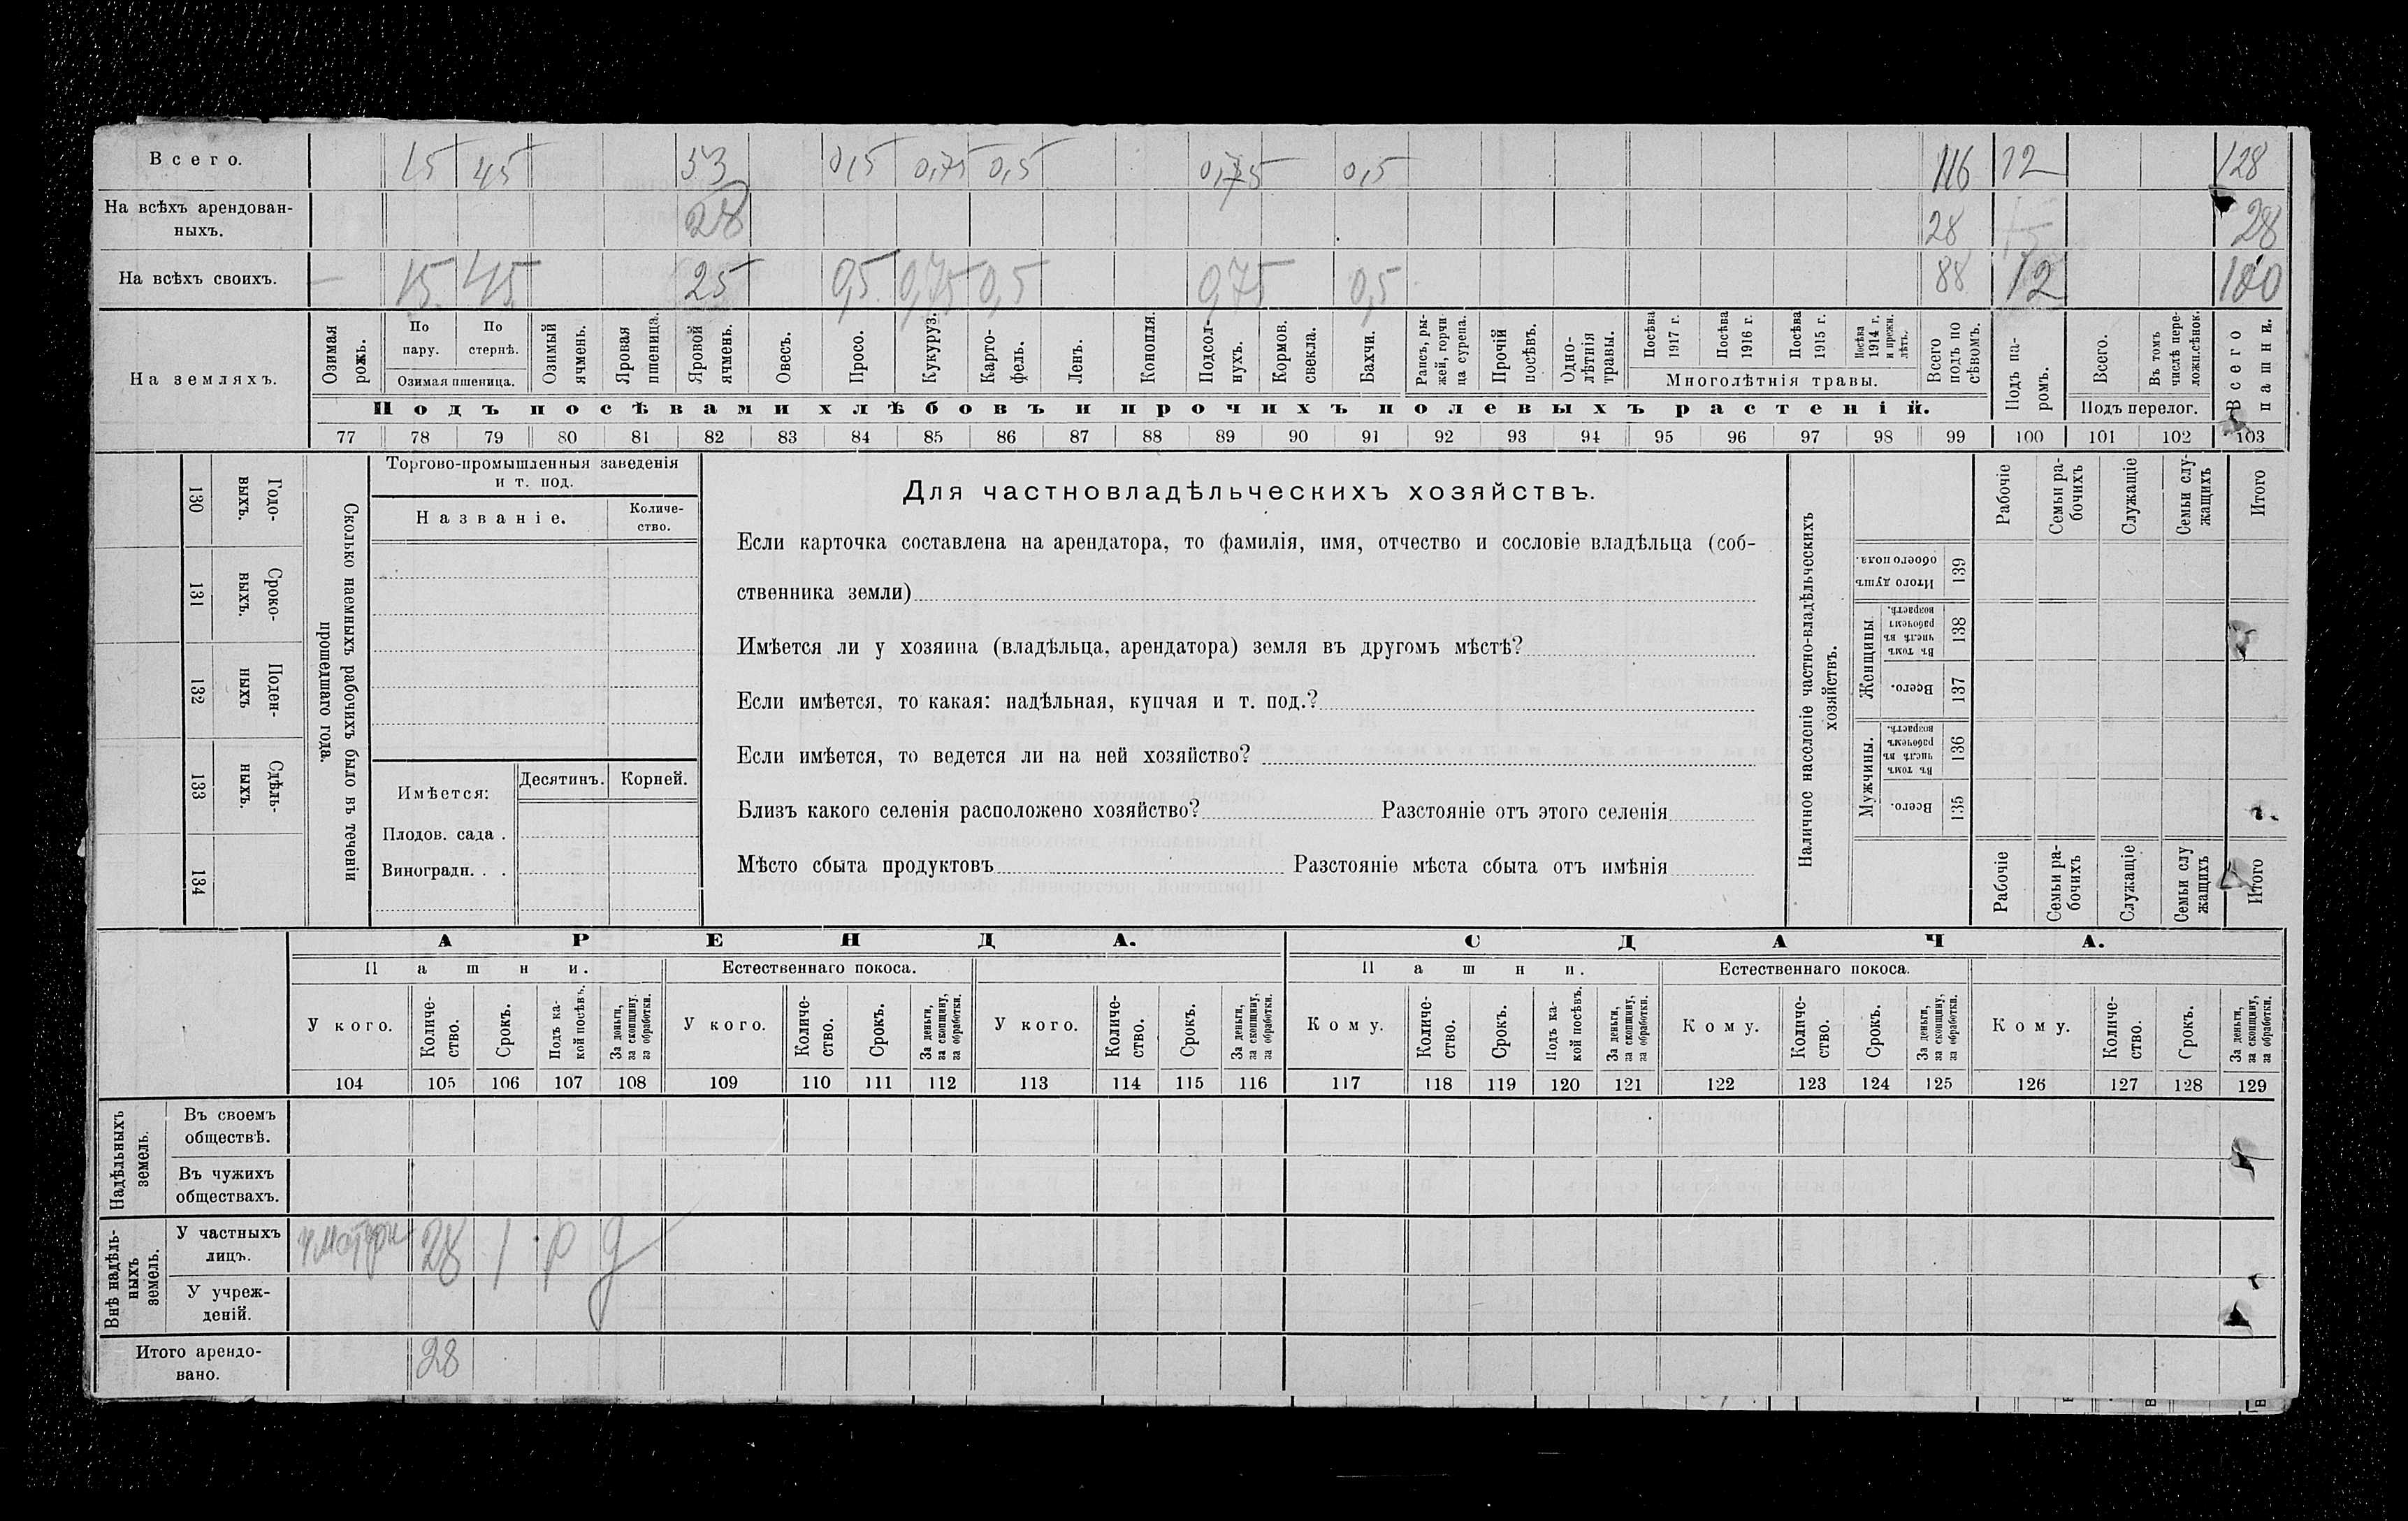 Всего. 15 45 53 0,5 0,75 0,5 0,75 0,5 116 12 128
На всѣхъ арендован-
ныхъ. 28 28 28
На всѣхъ своихъ. — 15 45 25 0,5 0,75 0,5 0,75 0,5 88 12 100
На земляхъ.
Озимая рожь.
По пару.
По стернѣ.
Озимая пшеница.
Озимый ячмень.
Яровая пшеница.
Яровой ячмень.
Овесъ.
Просо.
Кукуруз.
Карто-
фель.
Ленъ.
Конопля.
Подсол-
нухъ.
Кормов.
свекла.
Бахчи.
Рапсъ, ры-
жей, горчи-
ца сурепа.
Прочій
посѣвъ.
Одно-
лѣтнія
травы.
Посѣва
1917 г.
Посѣва
1916 г.
Посѣва
1915 г.
Посѣва
1914 г.
и прежн.
лѣтъ.
Многолѣтнія травы.
Всего
подъ по
сѣвомъ.
Подъ посѣвами хлѣбовъ и прочихъ полевыхъ растеній.
Подъ па-
ромъ.
Всего.
Въ томъ
числѣ пере-
ложн.сѣнок.
Подъ перелог.
Всего
пашни.
77 78 79 80 81 82 83 84 85 86 87 88 89 90 91 92 93 94 95 96 97 98 99 100 101 102 103
Годо-
выхъ.
130
Сроко-
выхъ.
131
Поден-
ныхъ
132
Сдѣль-
ныхъ.
133
134
Сколько наемныхъ рабочихъ было въ теченіи
прошедшаго года.
Торгово-промышленныя заведенія
и т. под.
Названіе.
Количе-
ство.
Имѣется:
Десятинъ.
Корней.
Плодов. сада .
Виноградн. . .
Для частновладѣльческихъ хозяйствъ.
Если карточка составлена на арендатора, то фамилія, имя, отчество и сословіе владѣльца (соб-
ственника земли)
Имѣется ли у хозяина (владѣльца, арендатора) земля въ другомъ мѣстѣ?
Если имѣется, то какая: надѣльная, купчая и т. под.?
Если имѣется, то ведется ли на ней хозяйство?
Близъ какого селенія расположено хозяйство? Разстояніе отъ этого селенія
Мѣсто сбыта продуктовъ Разстояніе мѣста сбыта отъ имѣнія
Наличное населеніе частно-владѣльческихъ
хозяйствъ.
Рабочіе
Семьи ра-
бочихъ
Служащіе
Семьи слу-
жащихъ
Итого
Итого душъ
обоего пола.
139
Женщины
Въ томъ
числѣ въ
рабочемъ
возрастѣ.
138
Всего.
137
Мужчины.
Въ томъ
числѣ въ
рабочемъ
возрастѣ.
136
Всего.
135
Рабочіе
Семьи ра-
бочихъ
Служащіе
Семьи слу
жащихъ
Итого
АРЕНДА. СДАЧА.
Пашни. Естественнаго покоса. Пашни. Естественнаго покоса.
У кого.
Количе-
ство.
Срокъ.
Подъ ка-
кой посѣвъ.
За деньги,
за скопщину,
за обработки.
У кого.
Количе-
ство.
Срокъ.
За деньги,
за скопщину,
за обработки.
У кого.
Количе-
ство.
Срокъ.
За деньги,
за скопщину,
за обработки.
Кому.
Количе-
ство.
Срокъ.
Подъ ка-
кой посѣвъ.
За деньги,
за скопщину,
за обработки.
Кому.
Количе-
ство.
Срокъ.
За деньги,
за скопщину,
за обработки.
Кому.
Количе-
ство.
Срокъ.
За деньги,
за скопщину,
за обработки.
104 105 106 107 108 109 110 111 112 113 114 115 116 117 118 119 120 121 122 123 124 125 126 127 128 129
Надѣльныхъ
земель.
Въ своемъ
обществѣ.
Въ чужихъ
обществахъ.
Внѣ надѣль-
ныхъ
земель.
У частныхъ
лицъ. 28 1 р д
У учреж-
деній.
Итого арендо-
вано. 28